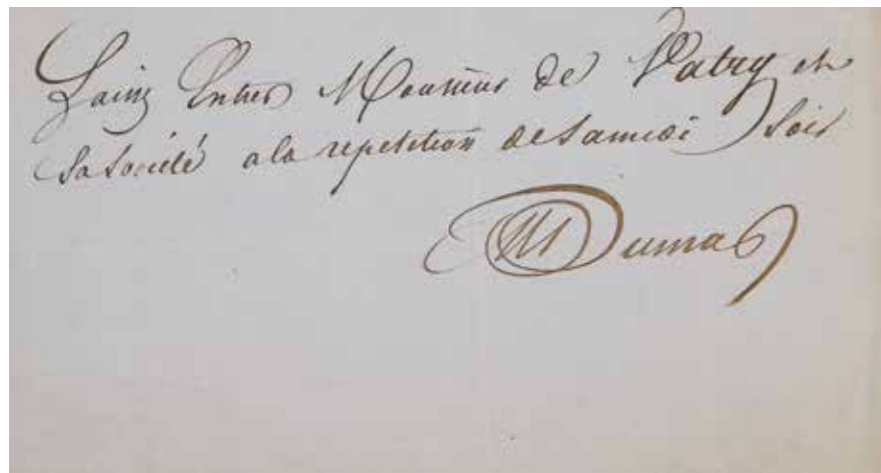 Laisez Entrer Monsieur de Vatry et
Sa Société a la repetition de Samedi Soir
Dumas